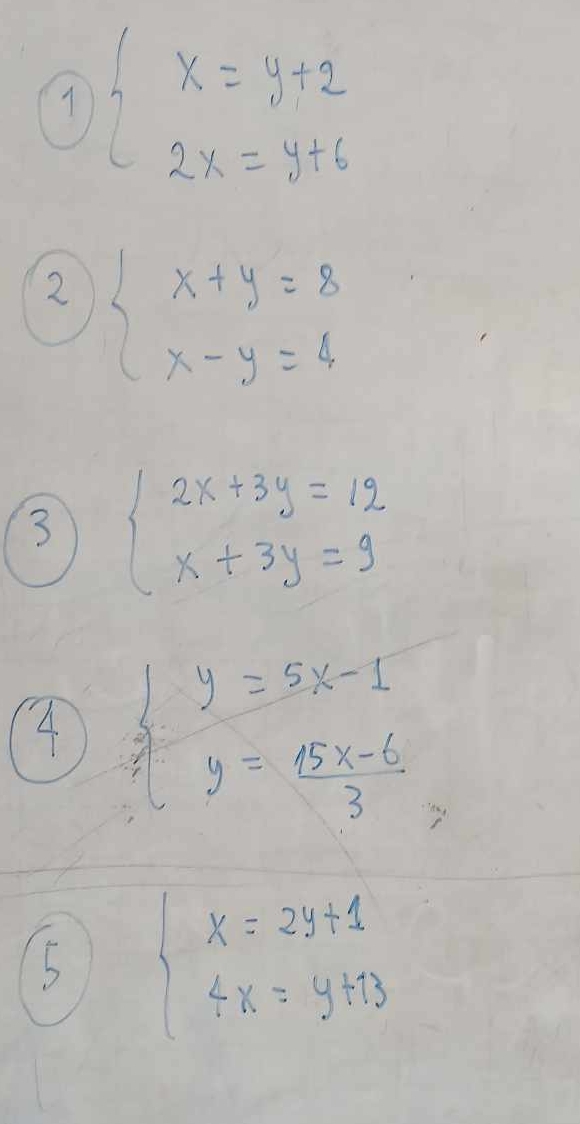 1
x = y+2
2x = y+6
2
x + y = 8
x - y = 4
3
2x + 3y = 12
x + 3y = 9
4
y = 5x - 1
y = 15x - 6
3
5
x = 2y+1
4x = y+13